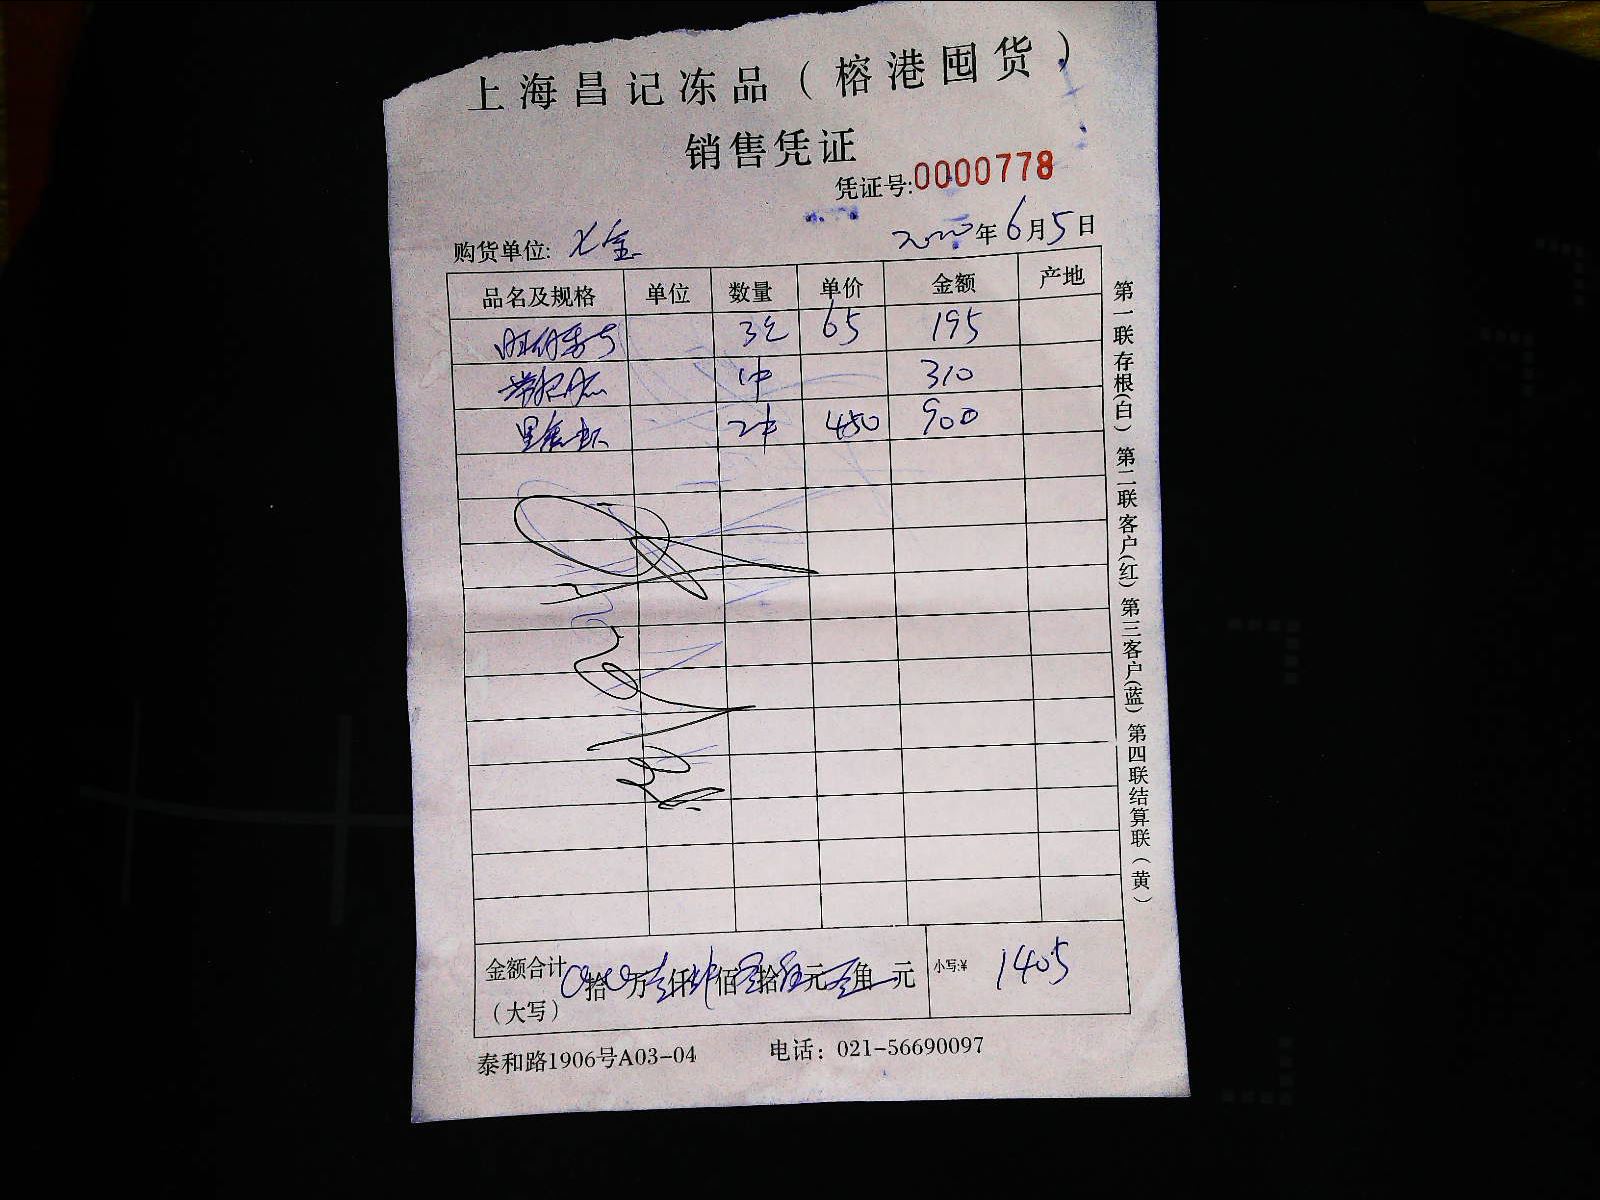 上海昌记冻品（榕港囤货）
销售凭证
凭证号:0000778
购货单位: 七金 2020年6月5日
品名及规格 单位 数量 单价 金额 产地
3包 65 195
1件 310
2件 450 900
金额合计 0拾0万壹仟肆佰零拾伍元零角 元 小写:¥ 1405
（大写）
泰和路1906号A03-04 电话：021-56690097
第一联存根(白) 第二联客户(红) 第三客户(蓝) 第四联结算联(黄)